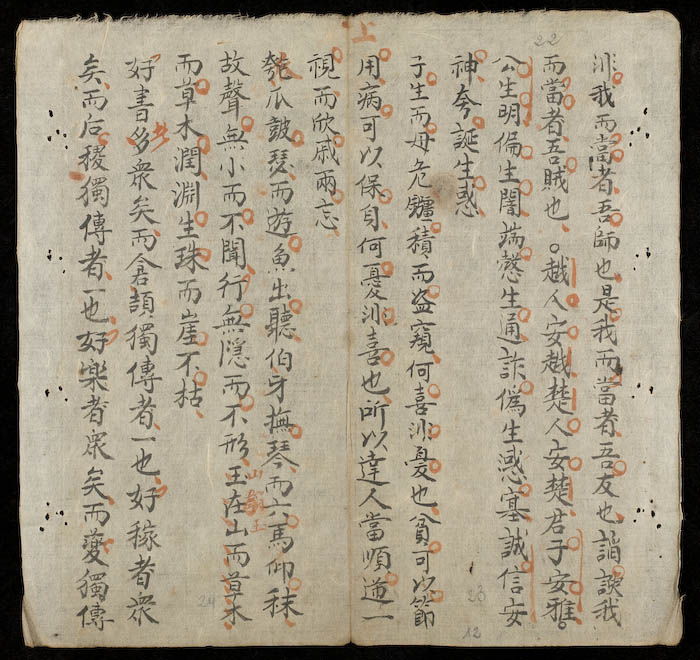 上
22
非我而當者吾師也是我而當者吾友也諂諛我
而當者吾賊也。越人安越楚人安楚君子安雅。
公生明偏生闇端愨生通詐偽生惑塞誠信安
神夸誕生惑
子生而母危鏹積而盗窺何喜非憂也貧可以節
用病可以保身何憂非喜也所以達人當順逆一
視而欣戚兩忘
匏瓜皷瑟而遊魚出聽伯牙撫琴而六馬仰秣
故聲無小而不聞行無隱而不形王在山而草木
而草木潤淵生珠而崖不枯
好書多衆矣而倉頡獨傳者一也好稼者衆
矣而后稷獨傳者一也好樂者衆矣而夔獨傳
23
12
24